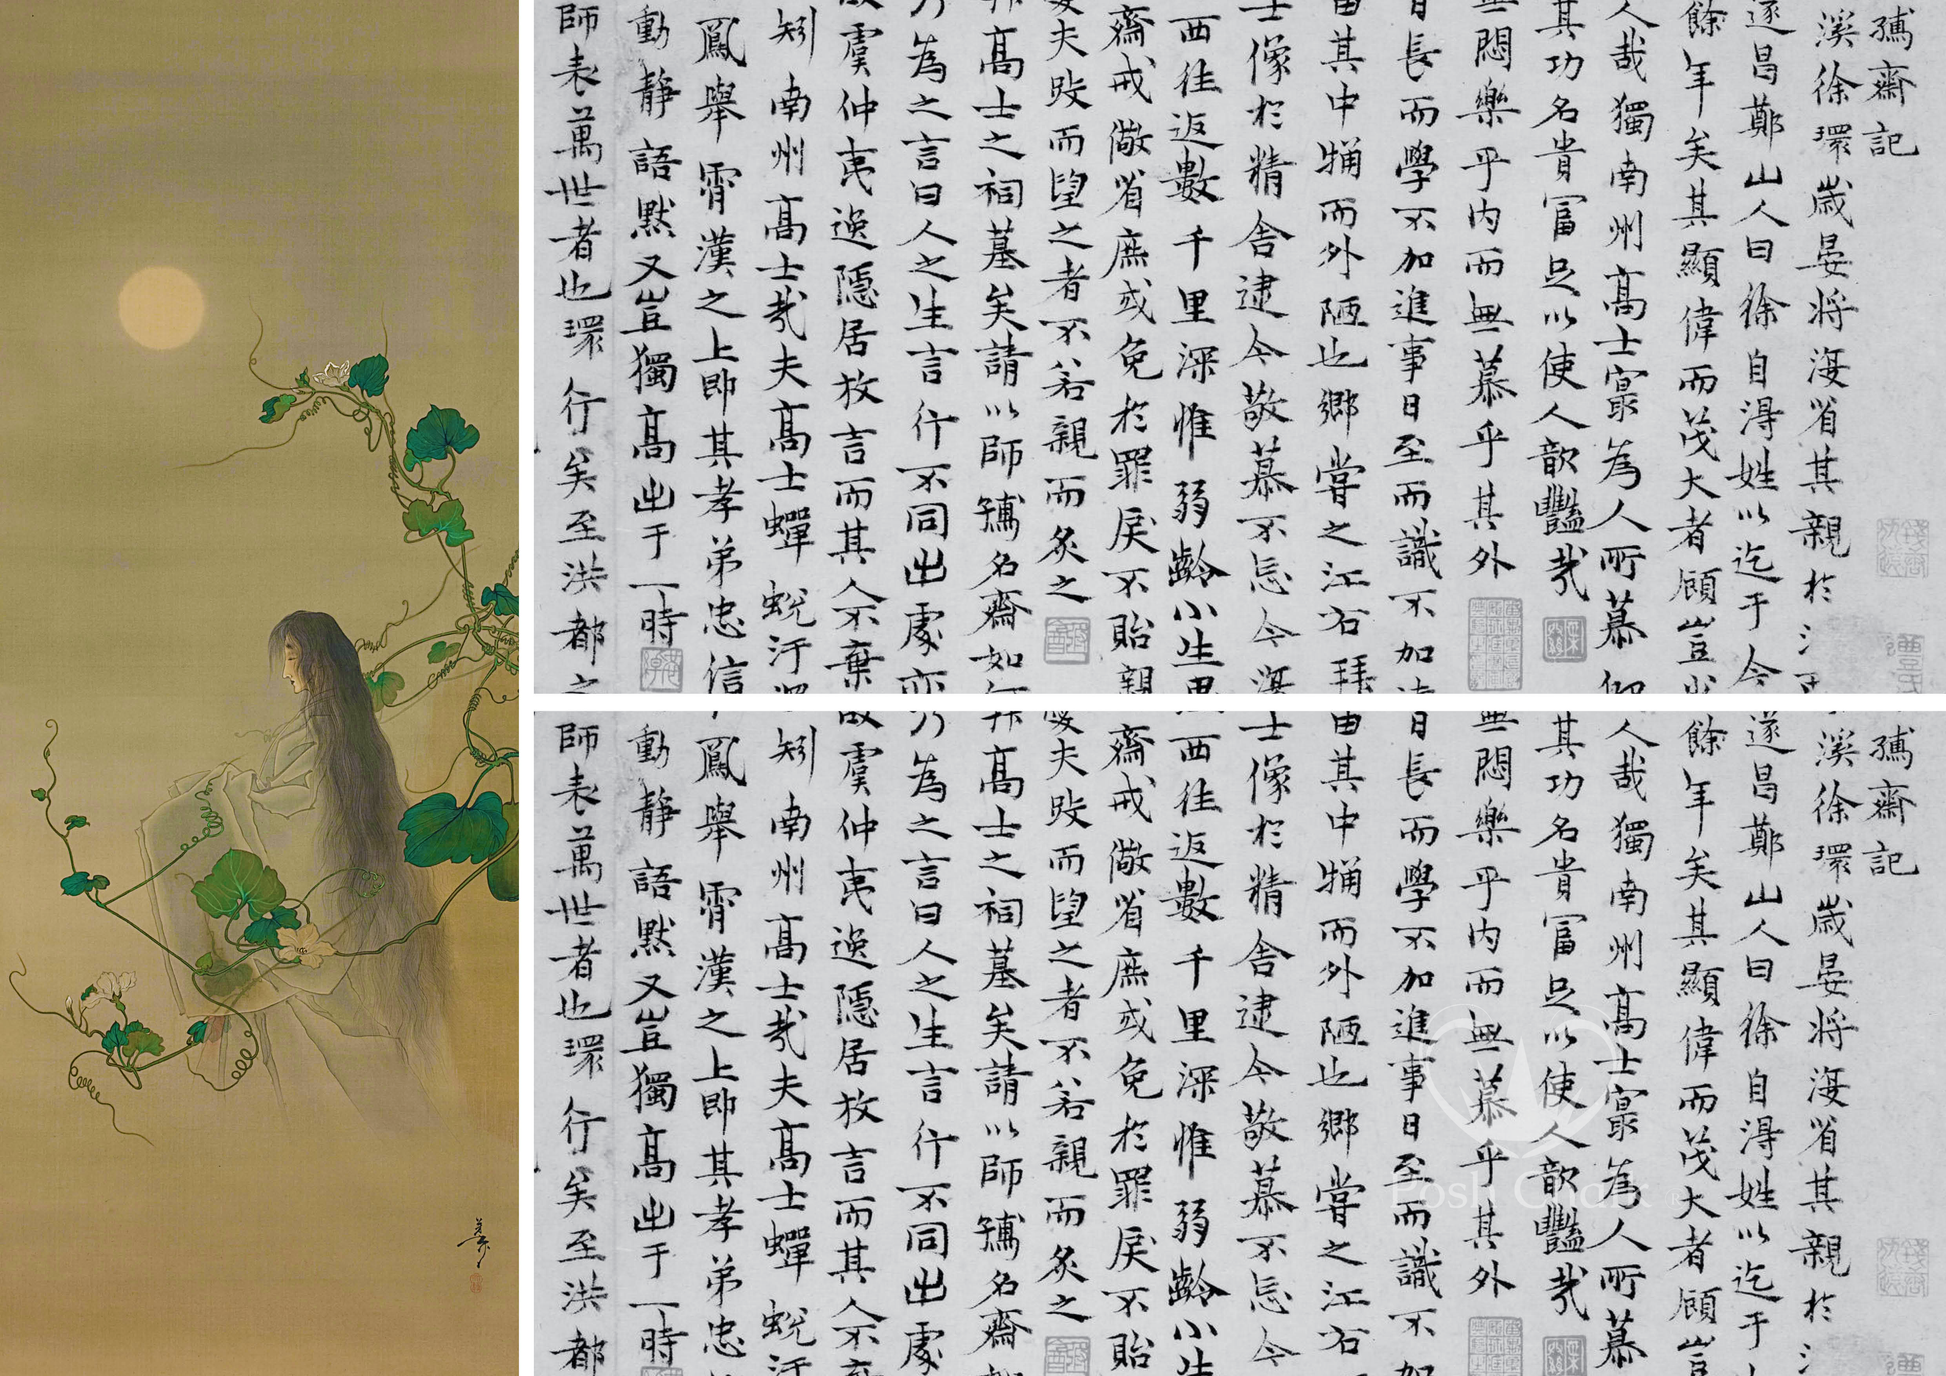 孺齋記
溪徐環歲晏將歸省其親於
遂昌鄭山人曰徐自得姓以迄于今
餘年矣其顯偉而茂大者顧豈
人哉獨南州高士寔為人所慕
其功名貴冨足以使人歆豔哉
悶樂乎內而無慕乎其外
日長而學不加進事日至而識不加
其中而外陋也鄉嘗之江右拜
士像於精舍逮今敬慕不忘今
西徃返數千里深惟弱齡小生
齋戒儆省庶或免於罪戾不貽親
夫跂而望之者不若親而炙之
高士之祠墓矣請以師孺名齋如
為之言曰人之生言行不同出處亦
虞仲夷逸隱居放言而其人不棄
矧南州高士哉夫高士蟬蛻汙
鳳舉霄漢之上即其孝弟忠信
動靜語默又豈獨高出于一時
師表萬世者也環行矣至洪都之
孺齋記
溪徐環歲晏將歸省其親於
遂昌鄭山人曰徐自得姓以迄于
餘年矣其顯偉而茂大者顧豈
人哉獨南州高士寔為人所慕
其功名貴冨足以使人歆豔哉
悶樂乎內而無慕乎其外
日長而學不加進事日至而識不加
由其中而外陋也鄉嘗之江右
士像於精舍逮今敬慕不忘今
西徃返數千里深惟弱齡小生
齋戒儆省庶或免於罪戾不貽
夫跂而望之者不若親而炙之
高士之祠墓矣請以師孺名齋
為之言曰人之生言行不同出處
虞仲夷逸隱居放言而其人不
矧南州高士哉夫高士蟬蛻汙
鳳舉霄漢之上即其孝弟忠
動靜語默又豈獨高出于一時
師表萬世者也環行矣至洪都
Posh Chalk